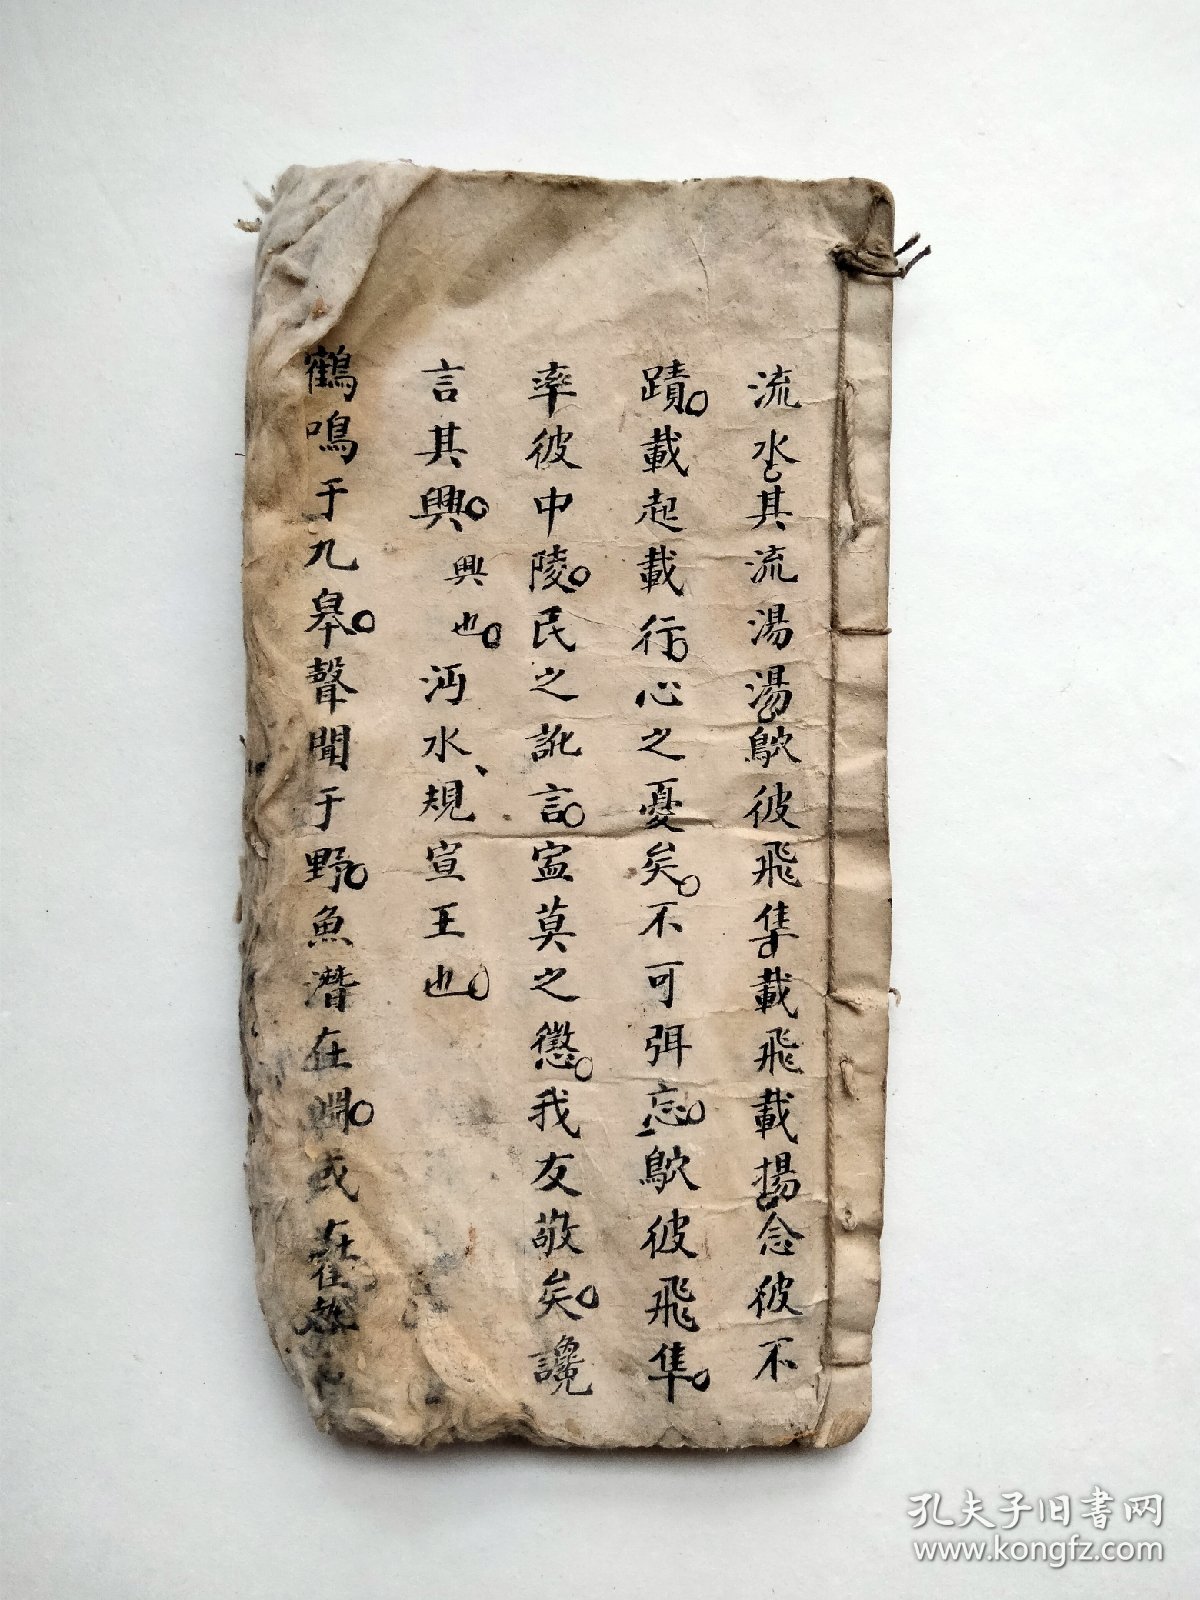 流水其流湯湯鴥彼飛隼載飛載揚念彼不
蹟載起載行心之憂矣不可弭忘鴥彼飛隼
率彼中陵民之訛言寍莫之懲我友敬矣讒
言其興興也沔水規宣王也
鶴鳴于九皋聲聞于野魚潛在淵或在
孔夫子旧書网
www.kongfz.com